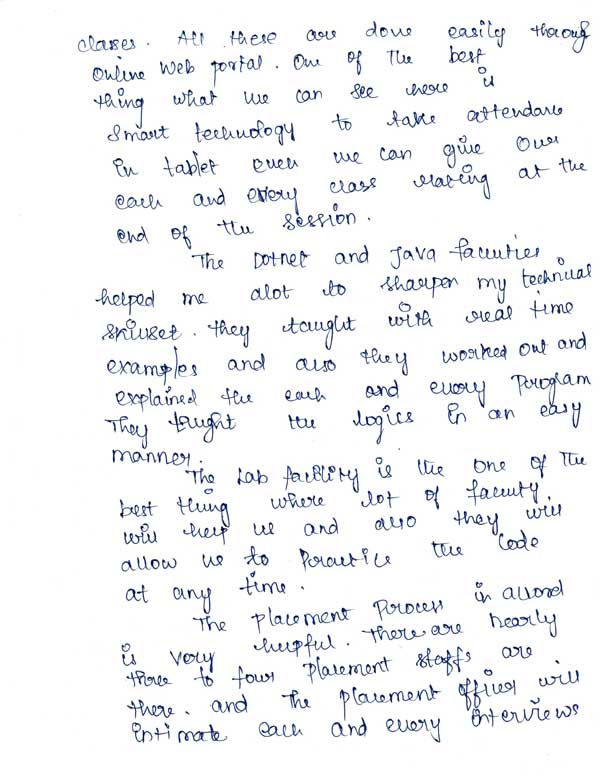 classes. All these are done easily throug
Online Web portal. One of the best
thing what we can see here is
Smart technology to take attendance
in tablet even we can give our
each and every class rating at the
end of the session.
The Dotnet and Java faculties
helped me alot to sharpen my technical
skillset. they taught with real time
examples and also they worked out and
explained the each and every Program
They taught the logics in an easy
manner.
The Lab facility is the one of the
best thing where lot of faculty
will help us and also they will
allow us to Practice the Code
at any time.
The Placement Process in allord
is very helpful. there are nearly
three to four Placement staffs are
there. and The placement officer will
intimate each and every interviews